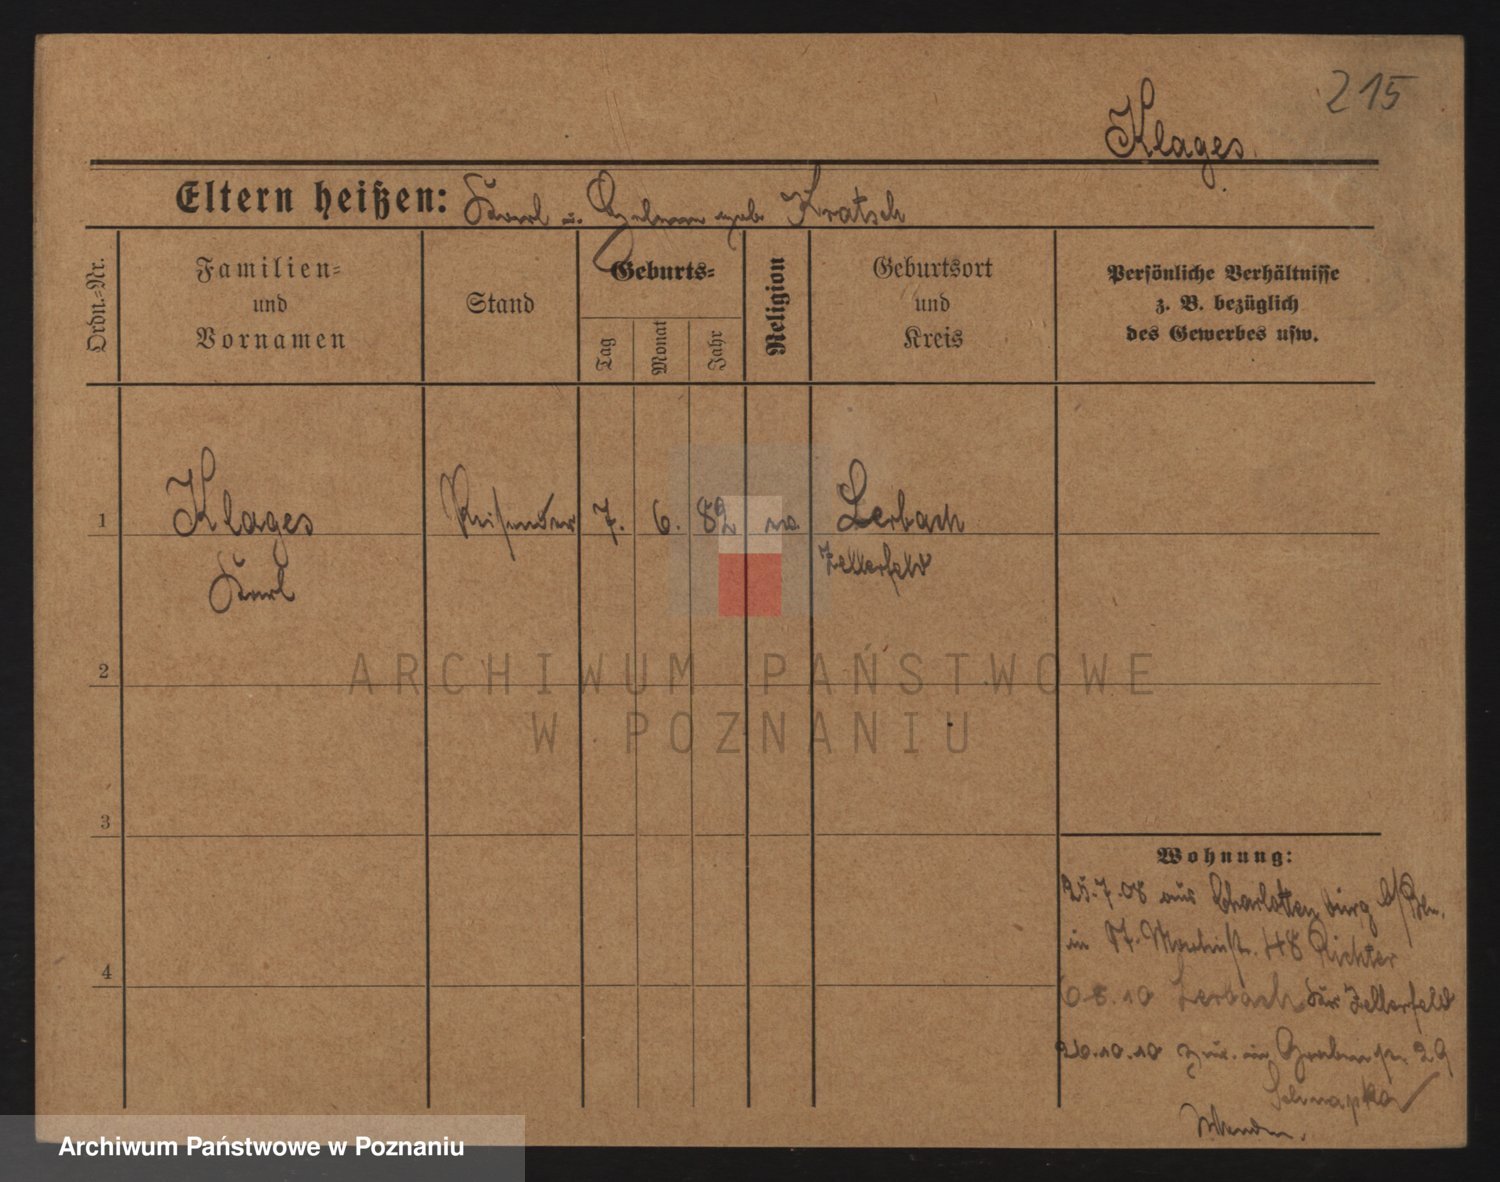 215
Klages.
Eltern heißen: Karl u. geb. Kratsch
Ordn.=Nr.
Familien=
und
Vornamen
Stand
Geburts=
Tag
Monat
Jahr
Religion
Geburtsort
und
Kreis
Persönliche Verhältnisse
z. B. bezüglich
des Gewerbes usw.
1 Klages Reisender 7. 6. 82 Lerbach
Karl Zellerfeld
2
ARCHIWUM PAŃSTWOWE
W POZNANIU
3
Wohnung:
25.7.08 aus Charlottenburg b/Bln.
in 48 Richter
8.10 Lerbach Kr. Zellerfeld
4
26.10.10 zur. in 29
Wenden.
Archiwum Państwowe w Poznaniu